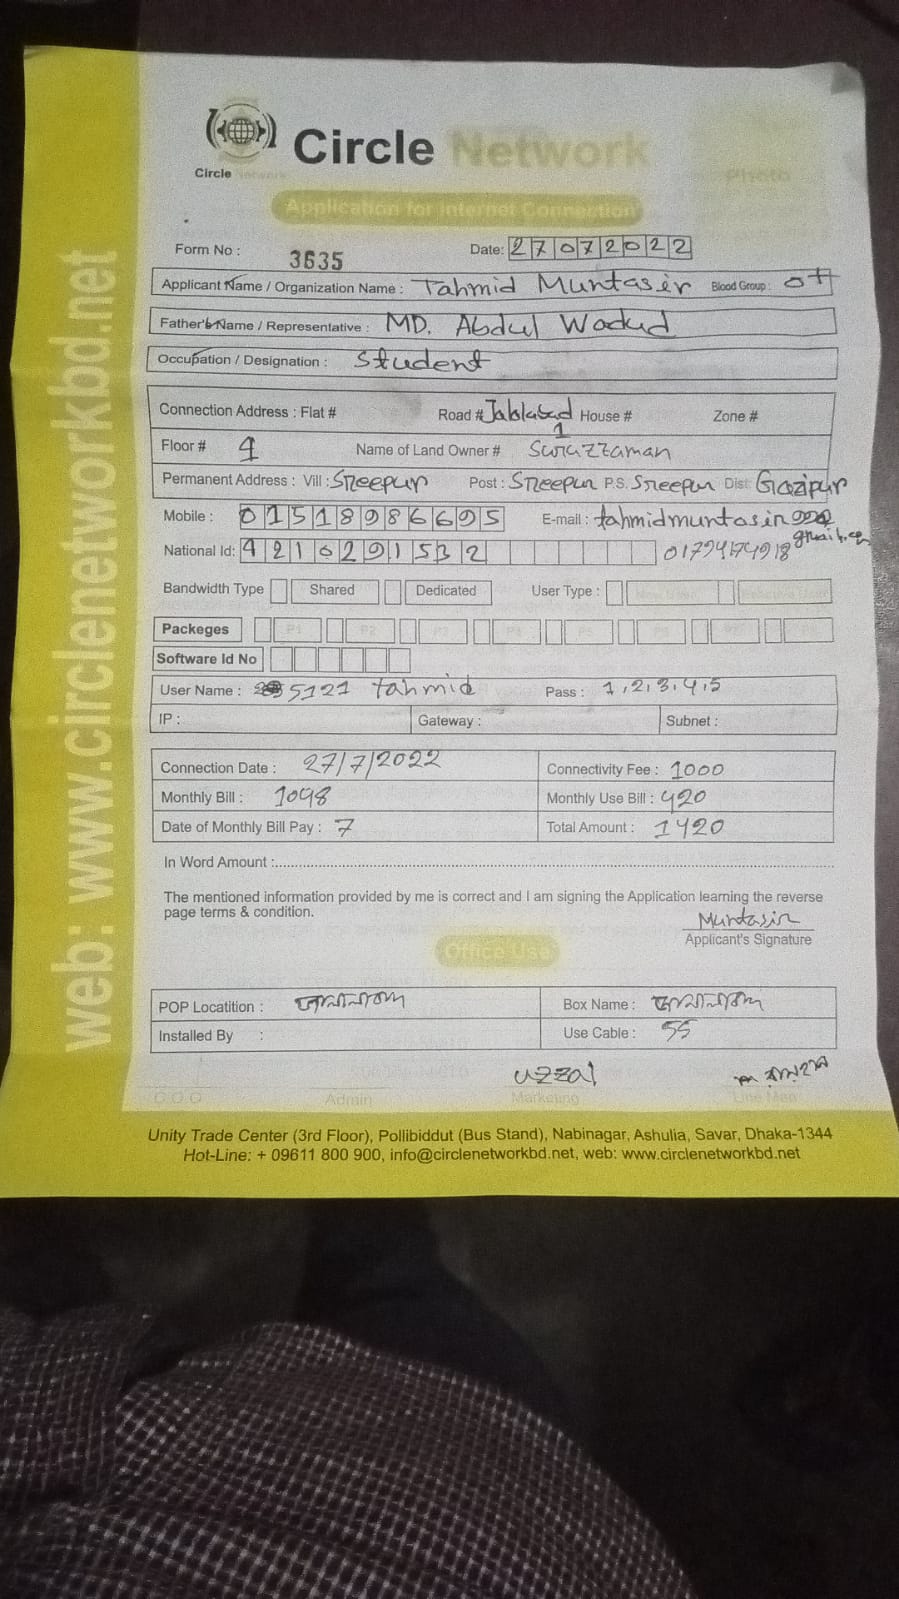 Circle Network
Circle Network
Photo
Application for Internet Connection
Form No : 3635 Date: 27072022
Applicant Name / Organization Name : Tahmid Muntasir Blood Group : O+
Father's Name / Representative : MD. Abdul Wadud
Occupation / Designation : Student
Connection Address : Flat # Road # House # Zone #
1
Floor # 4 Name of Land Owner # Surazzaman
Permanent Address : Vill : Sreepur Post : Sreepur P.S. Sreepur Dist: Gazipur
Mobile : 01518986695 E-mail : tahmidmuntasir
National Id: 4210291532
Bandwidth Type Shared Dedicated User Type :
Packeges P1 P2
Software Id No
User Name : 5121 tahmid Pass : 1,2,3,4,5
IP : Gateway : Subnet :
Connection Date : 27/7/2022 Connectivity Fee : 1000
Monthly Bill : 1098 Monthly Use Bill : 420
Date of Monthly Bill Pay : 7 Total Amount : 1420
In Word Amount :
The mentioned information provided by me is correct and I am signing the Application learning the reverse
page terms & condition.
Muntasir
Applicant's Signature
Office Use
POP Locatition : Box Name :
Installed By : Use Cable : 55
uzzal
C.O.O Admin Marketing Line Man
Unity Trade Center (3rd Floor), Pollibiddut (Bus Stand), Nabinagar, Ashulia, Savar, Dhaka-1344
Hot-Line: + 09611 800 900, info@circlenetworkbd.net, web: www.circlenetworkbd.net
web: www.circlenetworkbd.net